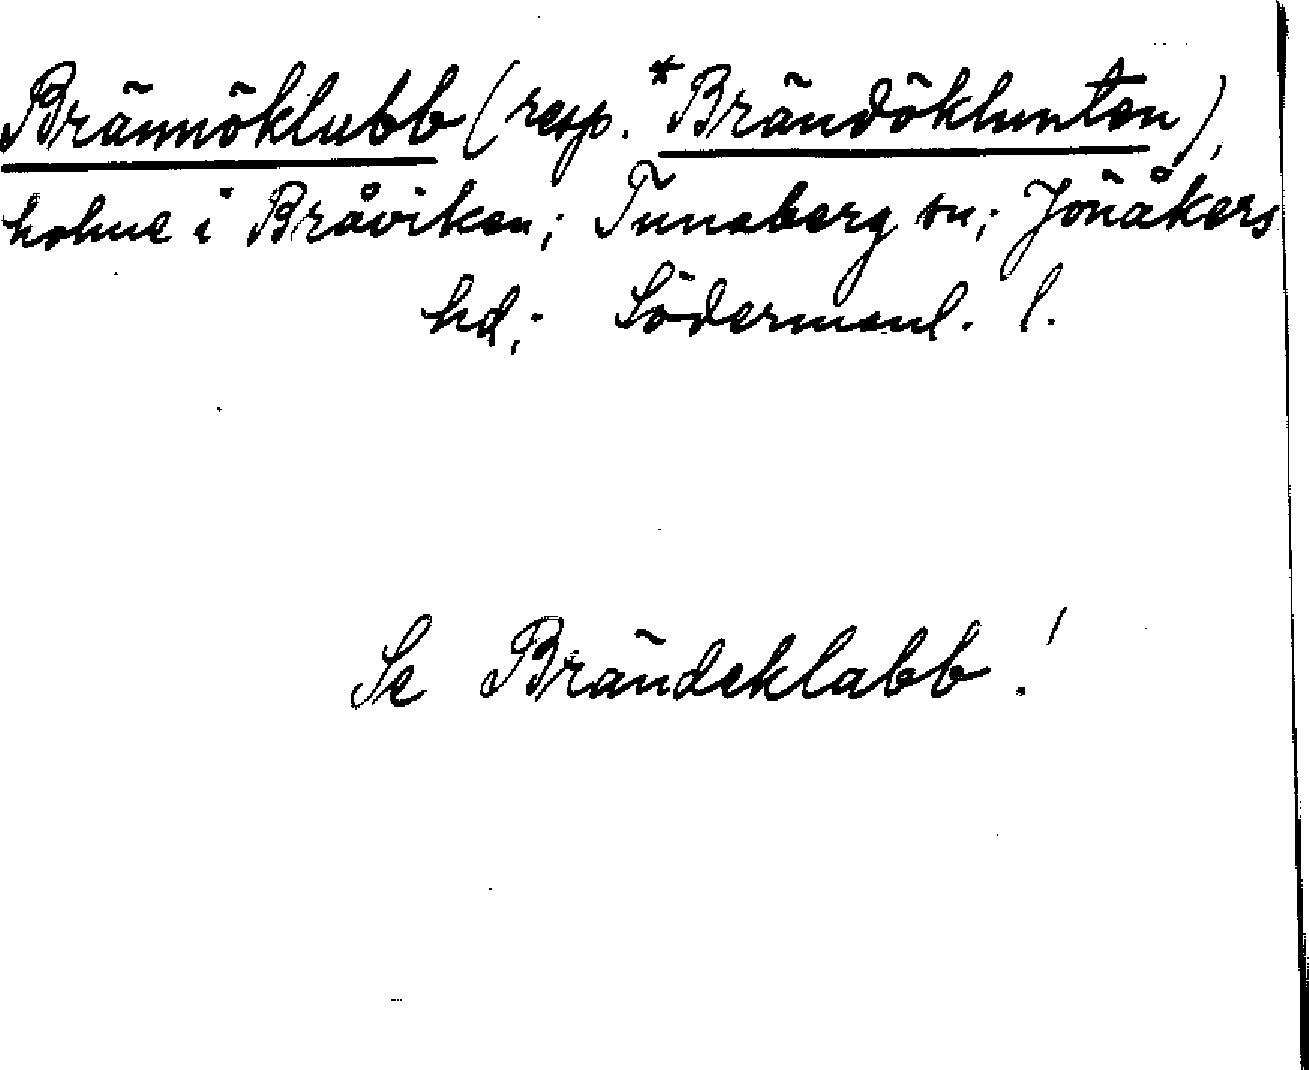 Brännöklubb (resp. *Brändöklunten),
holme i Bråviken; Tunaberg sn; Jönåkers
hd; Södermanl. l.
Se Brändeklabb!